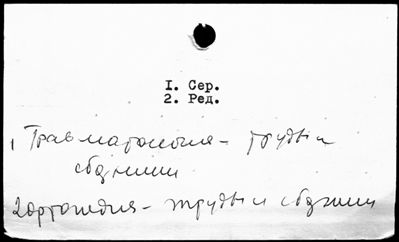 I. Сер.
2. Ред.
1 Травматология - труды и
сборники
2 Ортопедия - труды и сборники